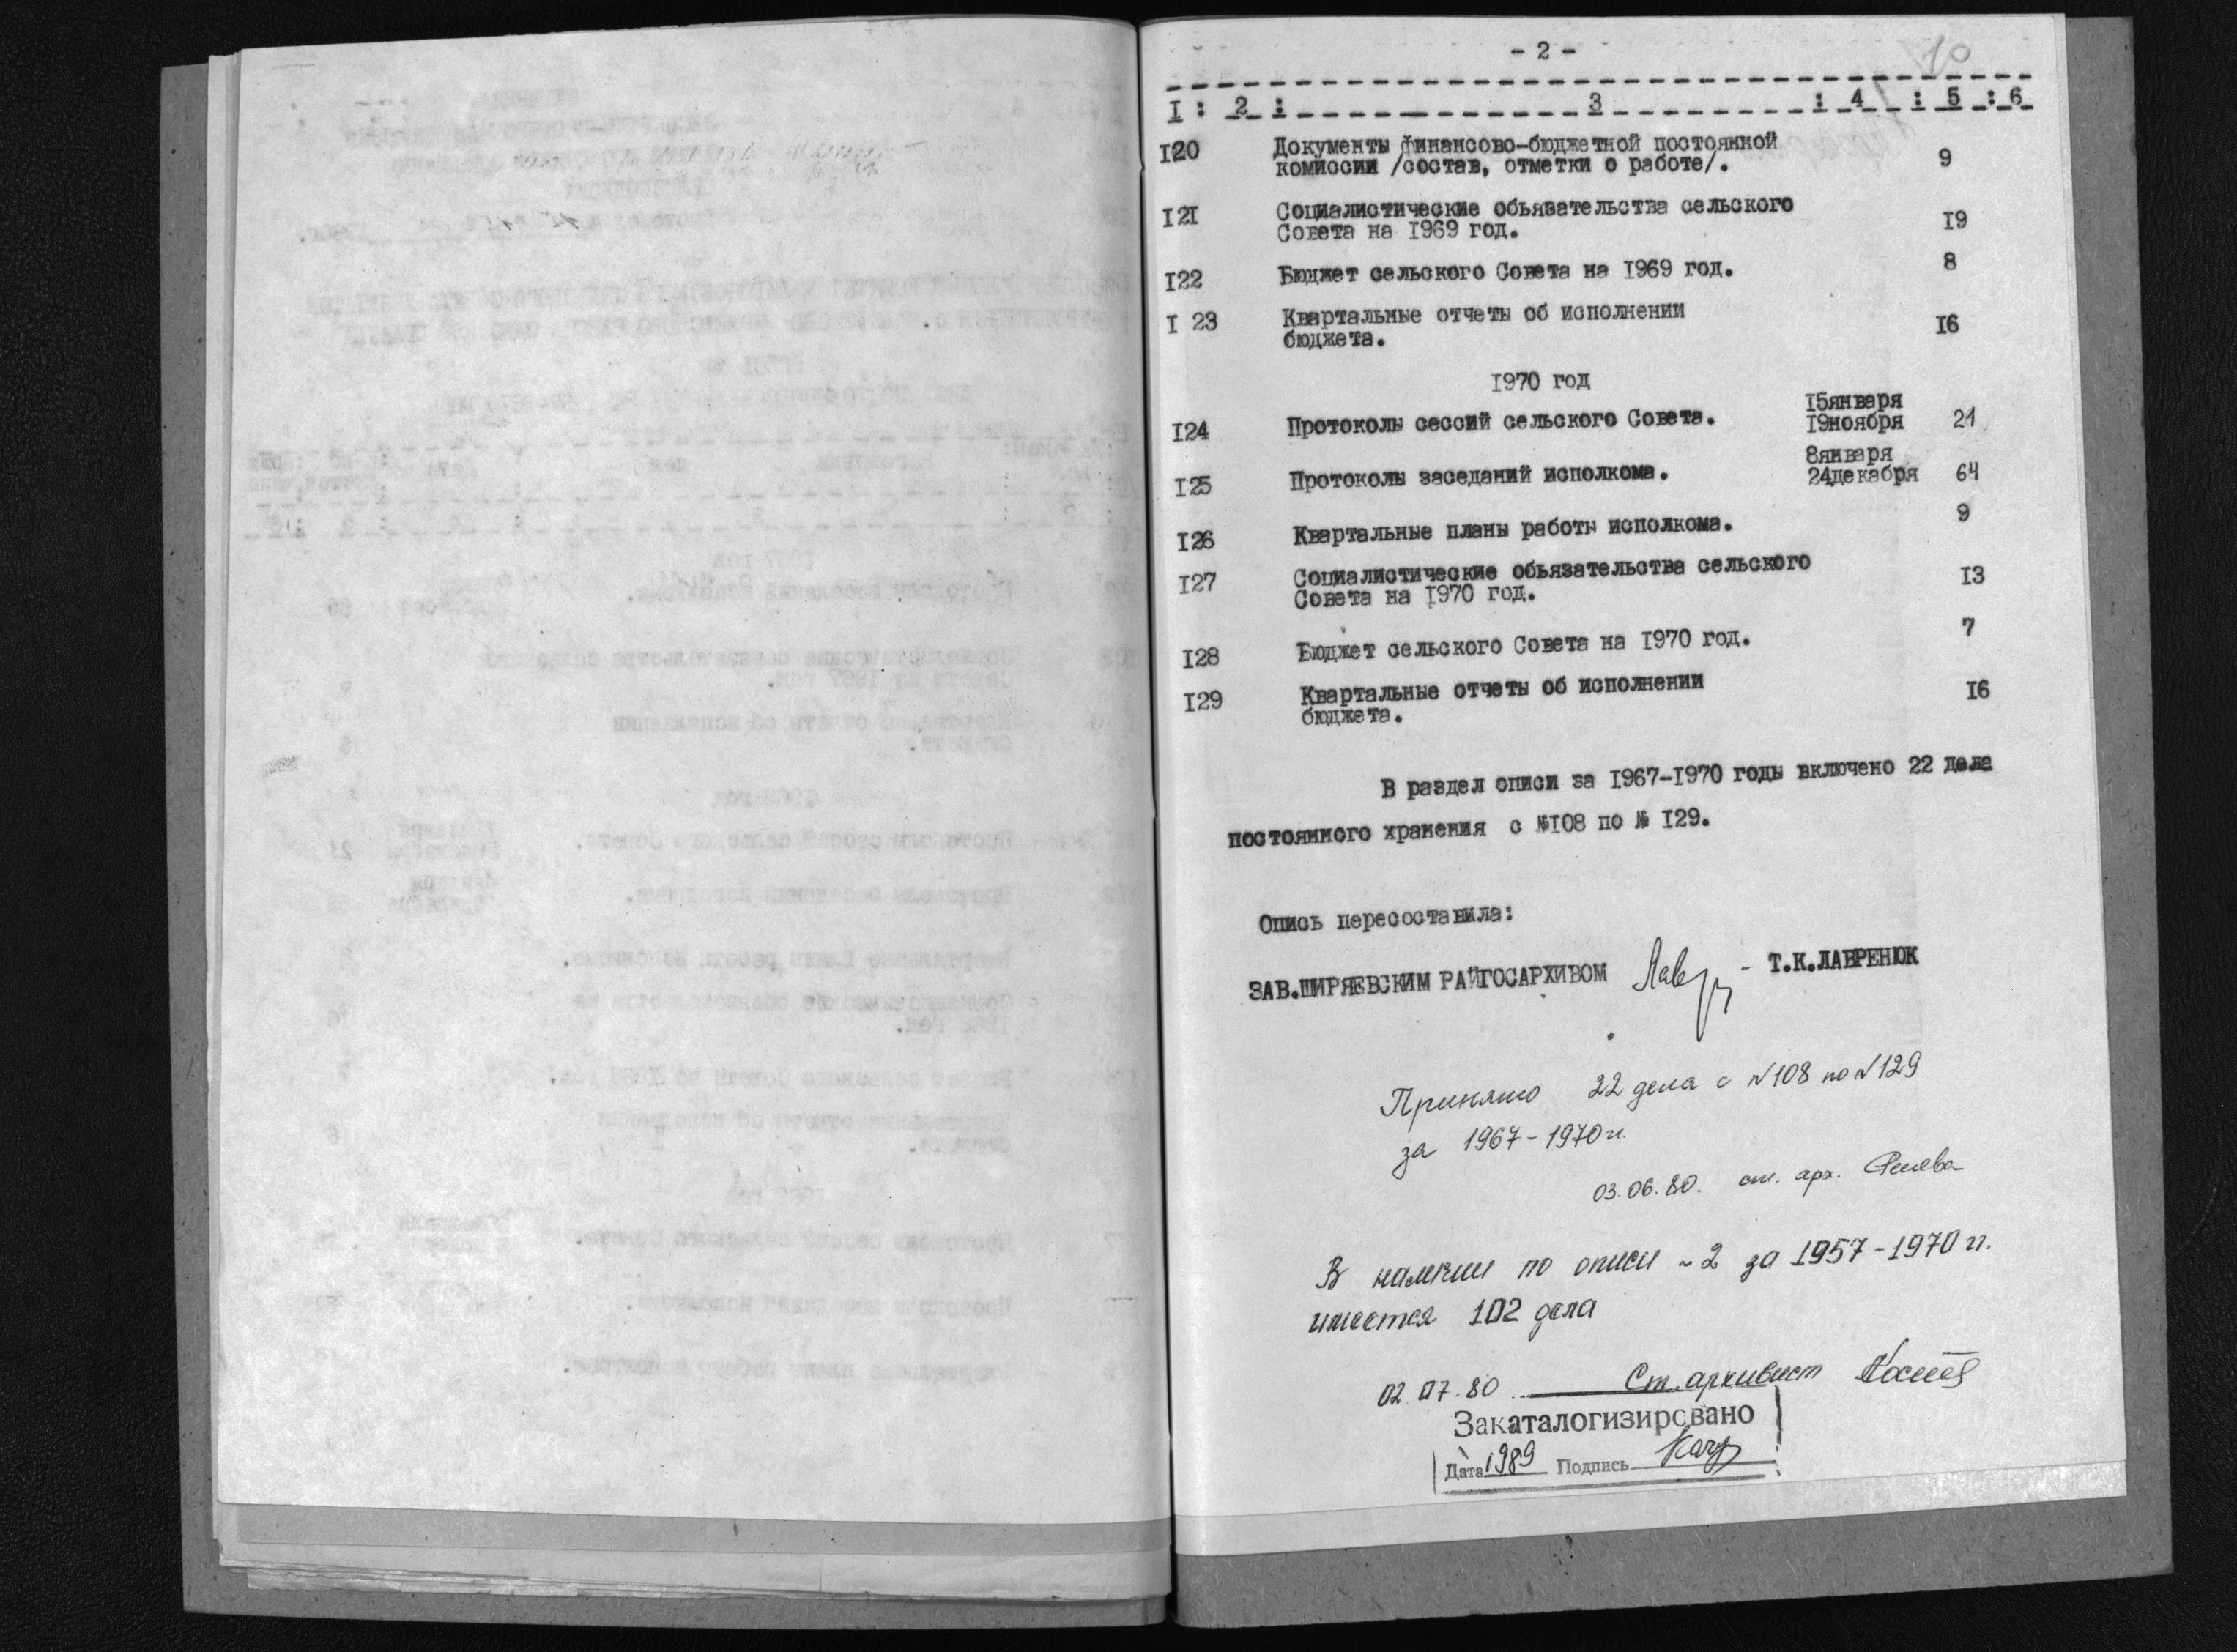 - 2 -
10
I : 2 : 3 : 4 : 5 : 6
I20 Документы финансово-бюджетной постоянной
комиссии /состав, отметки о работе/. 9
I2I Социалистические обьязательства сельского
Совета на I969 год. I9
I22 Бюджет сельского Совета на I969 год. 8
I 23 Квартальные отчеты об исполнении
бюджета. I6
I970 год
I24 Протоколы сессий сельского Совета. I5января
I9ноября 21
I25 Протоколы заседаний исполкома. 8января
24декабря 64
I26 Квартальные планы работы исполкома. 9
I27 Социалистические обьязательства сельского
Совета на I970 год. I3
I28 Бюджет сельского Совета на I970 год. 7
I29 Квартальные отчеты об исполнении
бюджета. I6
В раздел описи за I967-I970 годы включено 22 дела
постоянного хранения с №I08 по № I29.
Опись пересоставила:
ЗАВ.ШИРЯЕВСКИМ РАЙГОСАРХИВОМ Т.К.ЛАВРЕНЮК
Принято 22 дела с №108 по №129
за 1967-1970гг.
03.06.80. ст. арх.
В наличии по описи №2 за 1957-1970 гг.
имеется 102 дела
02.07.80 Ст. архивист
Закаталогизировано
Дата 1989 Подпись